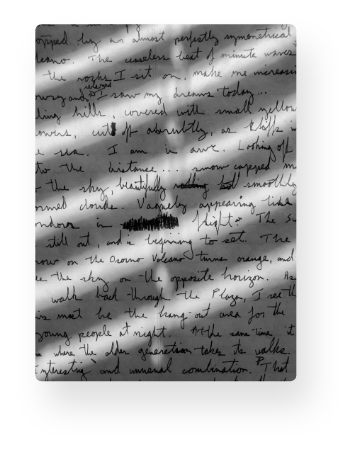 topped by an almost perfectly symmetrical
The ceaseless beat of minute waves
the rocks I sit on, make me increasi
relaxed
and I saw my dreams today...
ling hills, covered with small yellow
owers, cut off abruptly, as bluffs
the sea. I am in awe. Looking off
to the distance... snow capped
the sky, beautifully smoothly
ormed clouds. Vaguely appearing like
in flight? The
still out, and is beginning to set. The
now on the Osorno Volcano turns orange, and
the sky on the opposite horizon. As
walk back through the Plaza, I see th
is must be the hang-out area for the
young people at night. At the same time, it
where the older generation takes its walks.
interesting and unusual combination. That